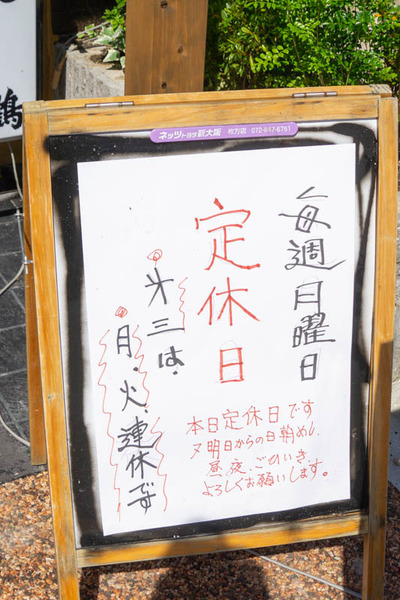 鶴
ネッツトヨタ新大阪 枚方店 072-847-6761
毎週月曜日
定休日
㐧三は、
月、火、連休です
本日定休日です
又明日からの日朝めし、
昼夜、ごひいき、
よろしくお願いします。